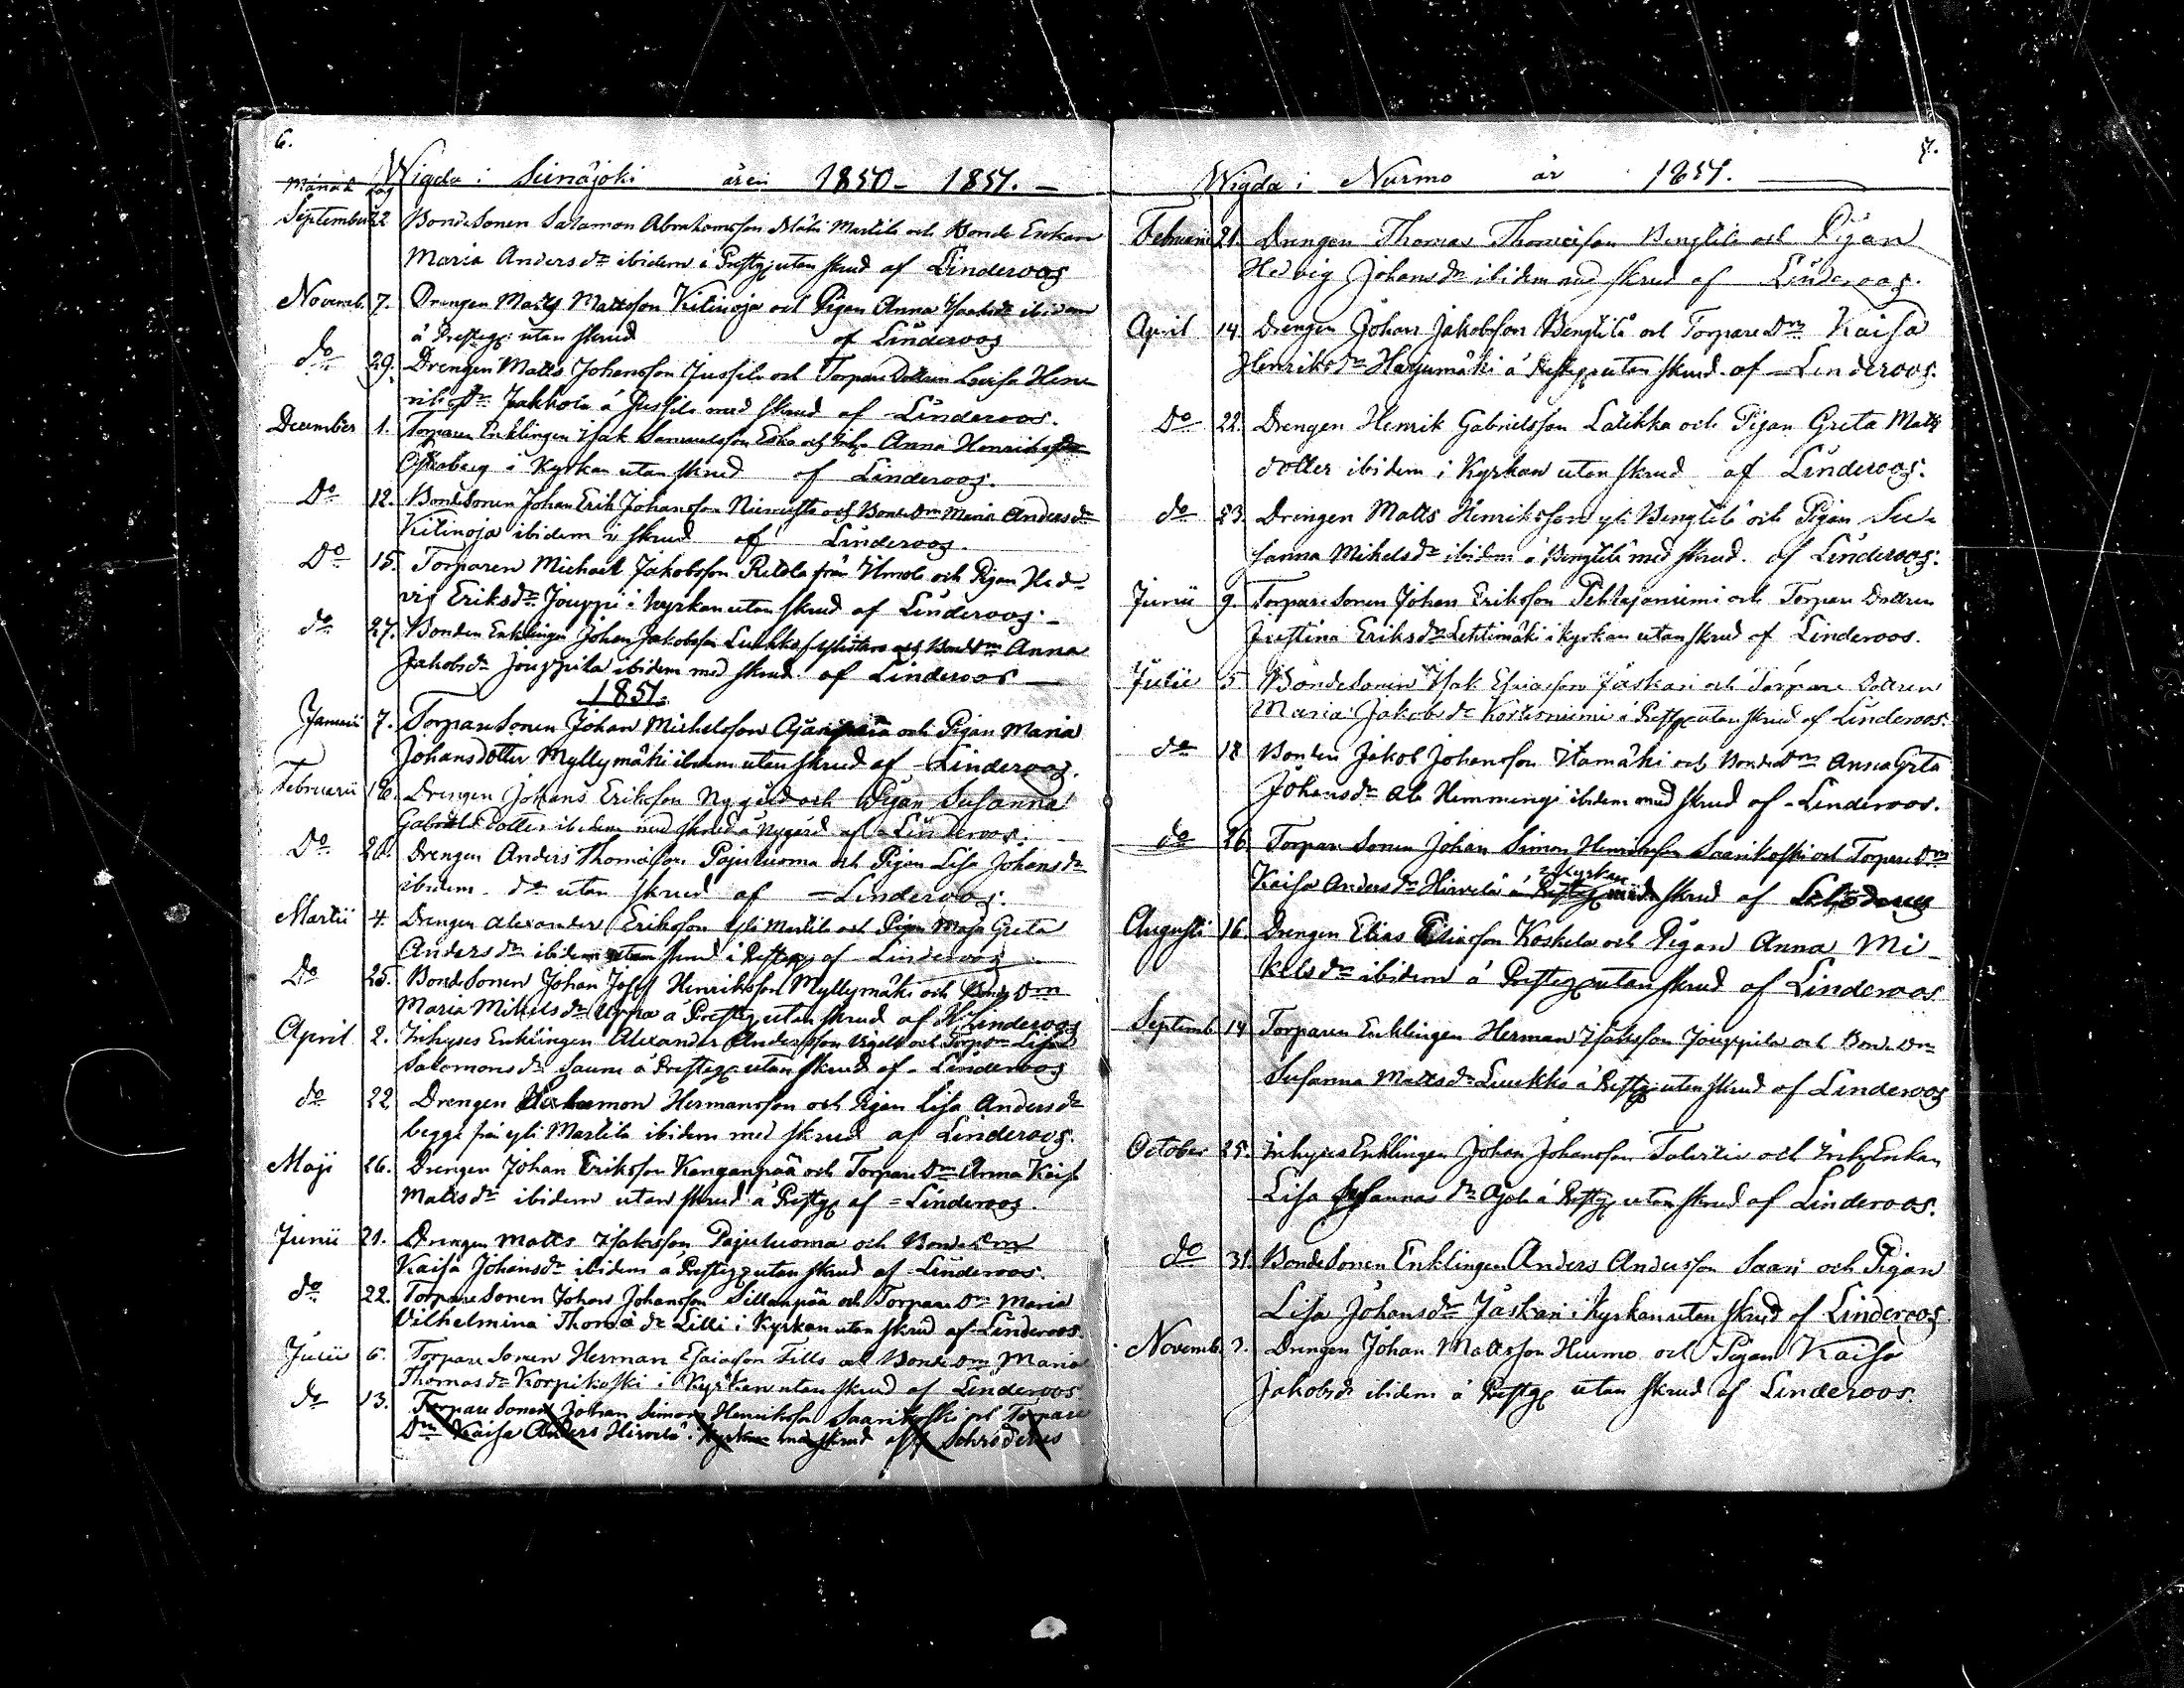 6.
Månad Dag Wigda i Seinäjoki åren 1850 - 1851. -
September 22 Bondesonen Salamon Abrahamsson Mäki Martila och Bonde Enkan
Maria Anders dr ibidem i Prestg: utan skrud af Linderoos
Novemb. 7. Drengen Matts Mattsson Kitinoja och Pigan Anna Isaks dr ibidem
å Prestg: utan skrud af Linderoos
do 29. Drengen Matts Johansson Jussila och Torpare Dottren Lovisa Hen
riks dr Jakkola å Jussila med skrud af Linderoos.
December 1. Torparen Enklingen Isak Samuelsson Esko och Anna Henriks dr
i Kyrkan utan skrud af Linderoos.
Do 12. Bondesonen Johan Erik Johansson Niemistö och Bonde Drn Maria Anders dr
Kitinoja ibidem skrud af Linderoos.
Do 15. Torparen Michael Jakobsson Ritola från Ilmola och Pigan Hed-
vig Eriks dr Jouppi i kyrkan utan skrud af Linderoos. -
do 27. Bonden Enklingen Johan Jakobsson Luukko och Bonde Drn Anna
Jakobs dr Jouppila ibidem med skrud af Linderoos -
1851.
Januarii 7. Torpare Sonen Johan Michelsson och Pigan Maria
Johansdotter Myllymäki ibidem utan skrud af Linderoos.
Februarii Drengen Johans Eriksson Nygård och Pigan Susanna
Gabriels dotter ibidem med skrud å Nygård af = Linderoos.
Do 20. Drengen Anders Thomasson Pajuluoma och Pigan Lisa Johans dr
ibidem do utan skrud af = Linderoos.
Martii 4. Drengen Alexander Eriksson Yli Martila och Pigan Maja Greta
Anders dr ibidem utan skrud i Prestg: af Linderoos
Do 25. Bondesonen Johan Josef Henriksson Myllymäki och Bonde Drn
Maria Mikels dr Uppa å Prestg: utan skrud af Linderoos
April 2. Inhyses Enklingen Alexander Andersson och Torp: Drn Lisa
Salomons dr Sauna å Prestg: utan skrud af - Linderoos
do 22 Drengen Hermansson och Pigan Lisa Anders dr
begge från yli Martila ibidem med skrud af Linderoos.
Maji 26. Drengen Johan Eriksson Kanganpää och Torpare Drn Anna Kaisa
Matts dr ibidem utan skrud å Prestg: af = Linderoos.
Junii 21. Drengen Matts Isaksson Pajuluoma och Bonde Drn
Kaisa Johans dr ibidem å Prestg: utan skrud af - Linderoos.
do 22. Torpare Sonen Johan Johansson Sillanpää och Torpare Drn Maria
Vilhelmina Thomæ dr Lilli i Kyrkan utan skrud af Linderoos.
Julii 6. Torpare Sonen Herman Esaiasson Fills och Bonde Drn Maria
Thomas dr Korpikoski i Kyrkan utan skrud af Linderoos
do 13. Torpare Sonen Johan Simon Henriksson Saarikoski och Torpare
Drn Kaisa Anders Hirvelä i Kyrkan med skrud af Schroderus
7.
Wigda i Nurmo år 1851.
Februarii 21. Drengen Thomas Thomæson Bengtila och Pigan
Hedvig Johans dr ibidem med skrud af Linderoos.
April 14. Drengen Johan Jakobsson Bengtilä och Torpare Drn Kaisa
Henriks dr Harjumäki å Prestg: utan skrud af = Linderoos.
Do 22. Drengen Henrik Gabrielsson Latikka och Pigan Greta Matts
dotter ibidem i Kyrkan utan skrud af Linderoos.
do 23. Drengen Matts Henriksson yli Bengtilä och Pigan Su-
sanna Mikels dr ibidem å Bengtilä med skrud af Linderoos.
Junii 9. Torpare Sonen Johan Eriksson Pihlajaniemi och Torpare Dottren
Justina Eriks dr Lehtimäki i kyrkan utan skrud af Linderoos.
Julii 5. Bondesonen Isak Esaiasson Jäskari och Torpare Dottren
Maria Jakobs dr Kortesniemi å Prestg: utan skrud af Linderoos.
do 18 Bonden Jakob Johansson Itämäki och Bonde Drn Anna Greta
Johans dr Ala Hemmingi ibidem med skrud af - Linderoos.
do 26 Torpare Sonen Johan Simon Henriksson Saarikoski och Torpare Drn
i kyrkan
Kaisa Anders dr Hirvelä å Prestg: med skrud af Schroderus
Augusti 16. Drengen Elias Eliasson Koskela och Pigan Anna Mi-
kels dr ibidem å Prestg: utan skrud af Linderoos
Septemb 14 Torparen Enklingen Herman Isaksson Jouppila och Bonde Drn
Susanna Matts dr Luukko å Prestg: utan skrud af Linderoos
October 25. Inhyses Enklingen Johan Johansson Talvitie och Inh: Enkan
Lisa dr Ojala å Prestg: utan skrud af Linderoos.
do 31. BondeSonen Enklingen Anders Andersson Saari och Pigan
Lisa Johans dr Jäskari i kyrkan utan skrud af Linderoos
Novemb. 7. Drengen Johan Mattsson Huumo och Pigan Kaisa
Jakobs dr ibidem å Prestg: utan skrud af Linderoos.